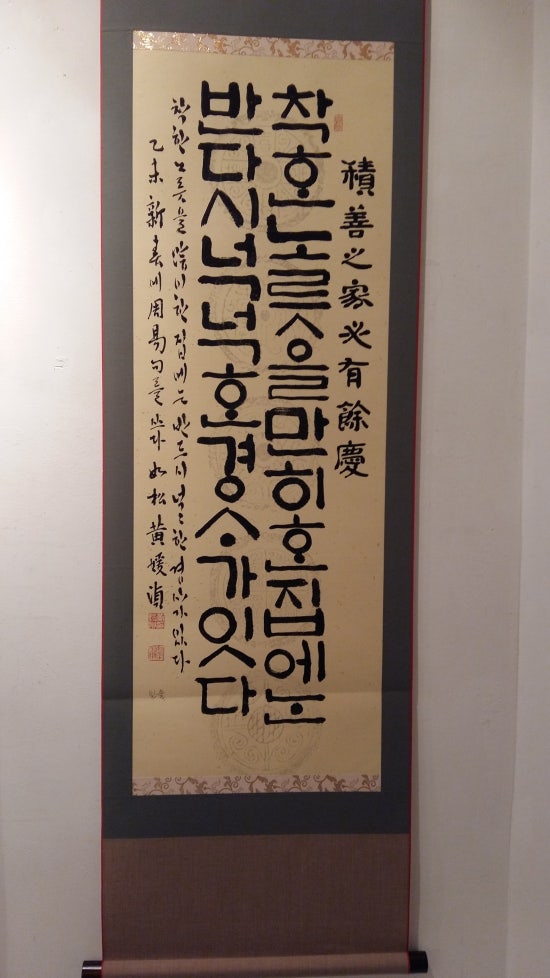 積善之家必有餘慶
착ᄒᆞᆫ노릇을만히ᄒᆞᆫ집에ᄂᆞᆫ
반다시넉넉ᄒᆞᆫ경ᄉᆞ가잇다
착한 노릇을 많이 한 집에는 반드시 넉넉한 경사가 있다
乙未 新春에 周易句를 쓰다 如松 黃媛